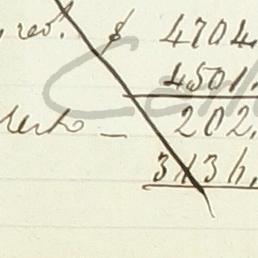 rev.s $ 4704.
4501.
resto _ 202.
3136.